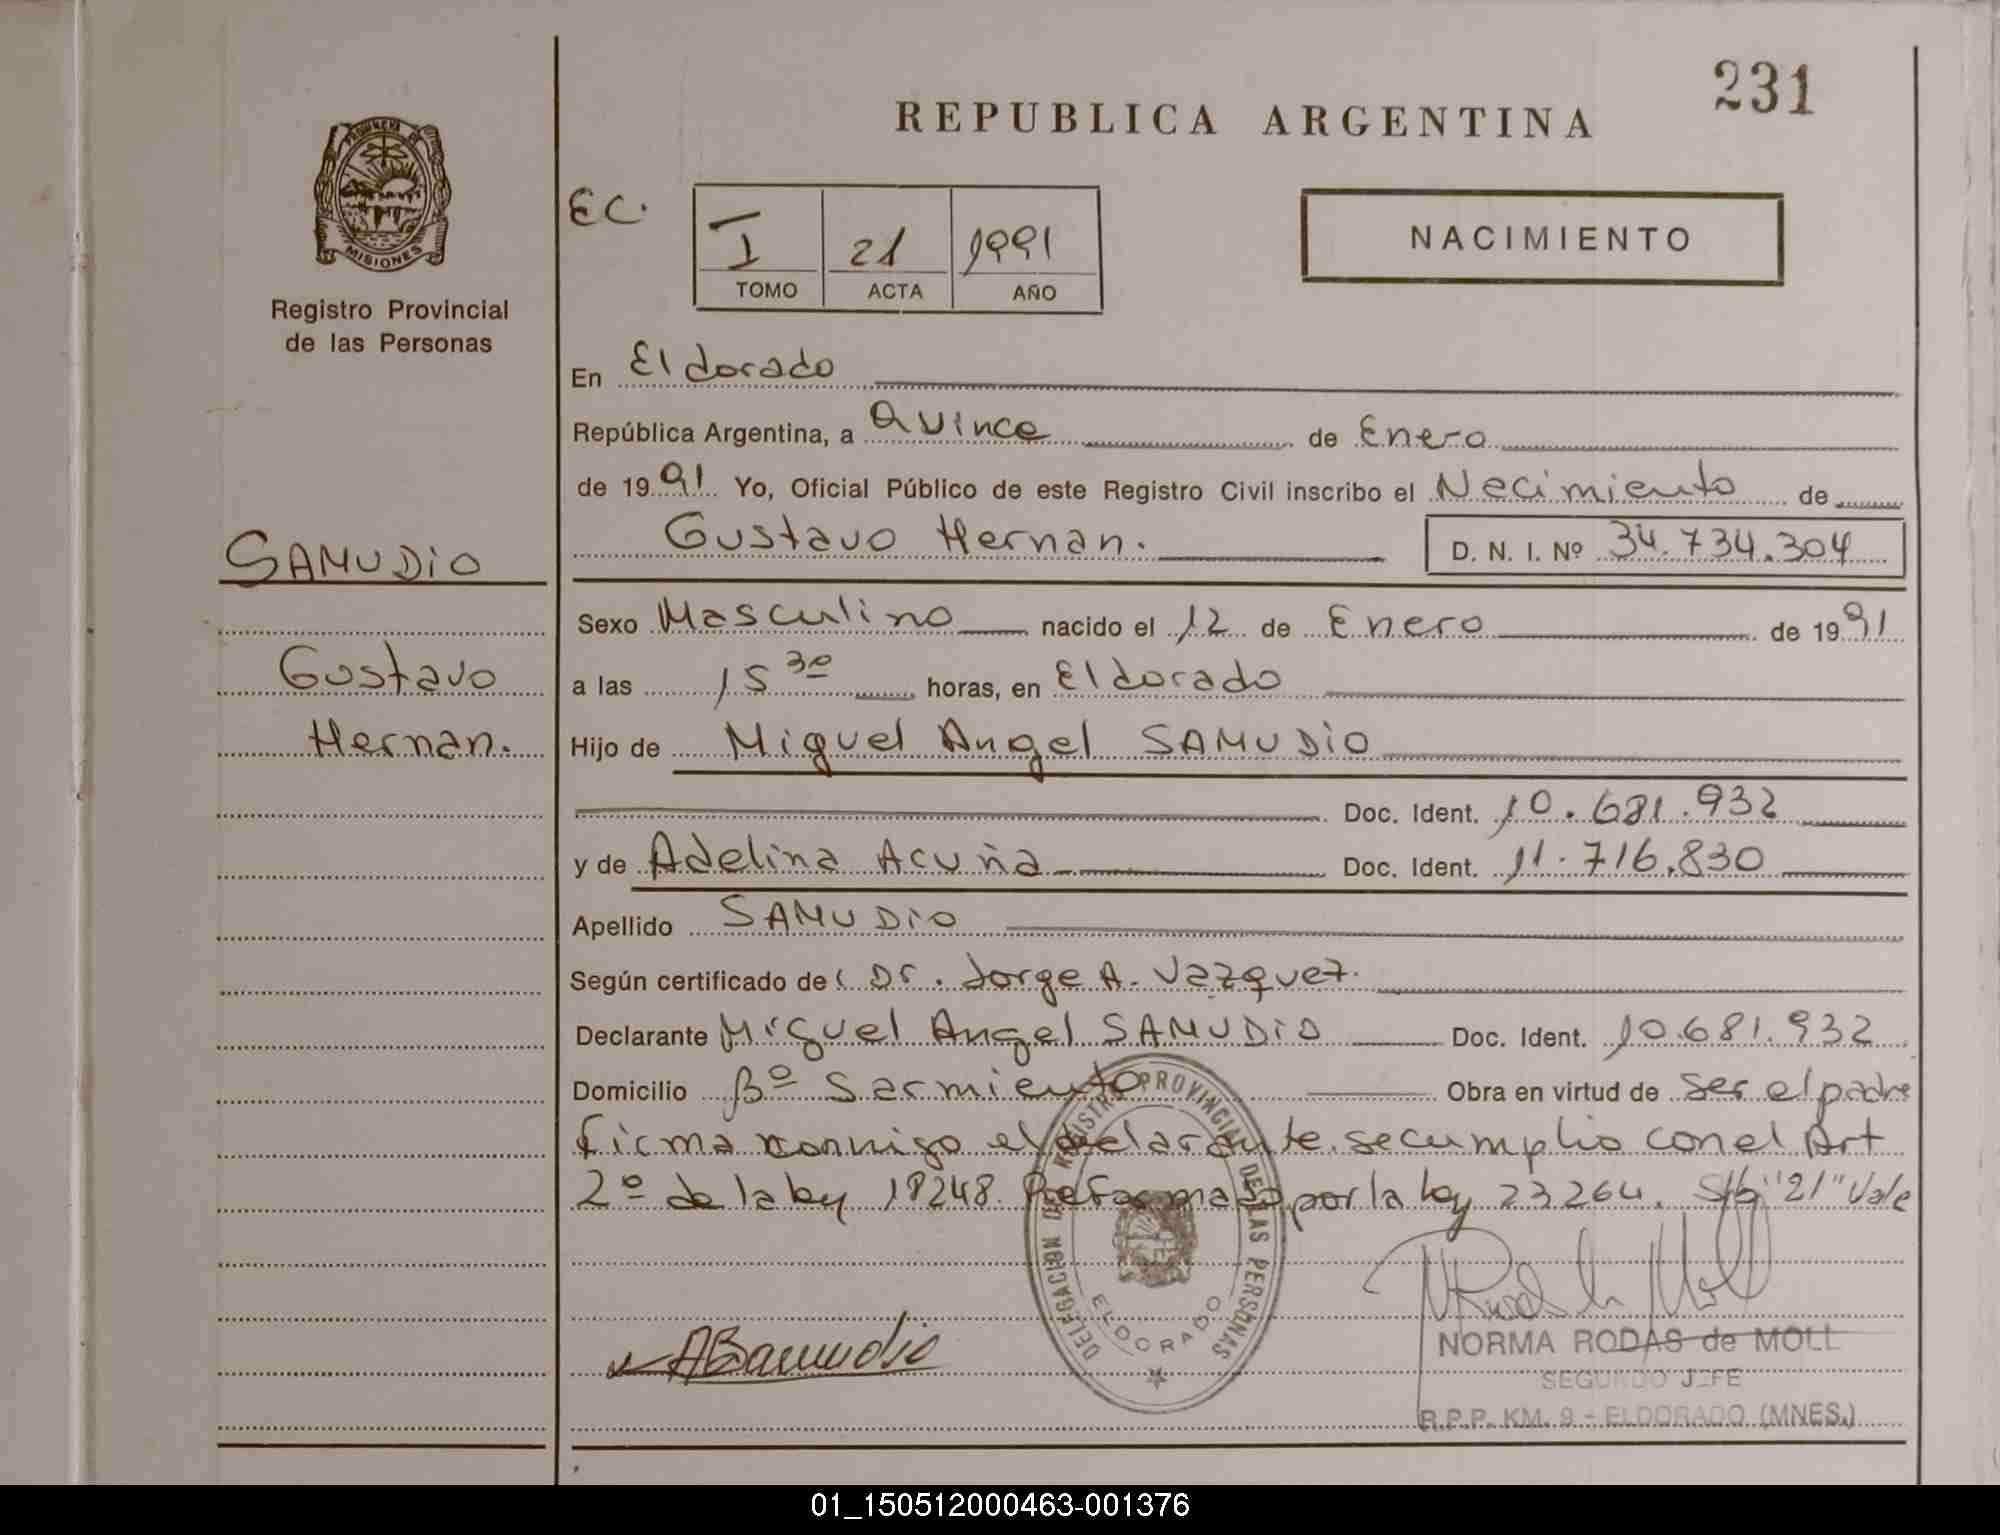 231
REPUBLICA ARGENTINA
PROVINCIA DE
MISIONES
Registro Provincial
de las Personas
EC.
I 21 1991
TOMO ACTA AÑO
NACIMIENTO
En Eldorado
República Argentina, a Quince de Enero
de 1991 Yo, Oficial Público de este Registro Civil inscribo el Nacimiento de
Gustavo Hernan. D. N. I. Nº 34.734.304
SAMUDIO
Gustavo
Hernan.
Sexo Masculino nacido el 12 de Enero de 1991
a las 15 30 horas, en Eldorado
Hijo de Miguel Angel SAMUDIO
Doc. Ident. 10.681.932
y de Adelina Acuña Doc. Ident. 11.716.830
Apellido SAMUDIO
Según certificado de Dr. Jorge A. Vazquez.
Declarante Miguel Angel SAMUDIO Doc. Ident. 10.681.932
Domicilio Bº Sarmiento Obra en virtud de ser el padre
firma conmigo el declarante. se cumplio con el Art
2º de la ley 18248. Reformado por la ley 23264. S/b "21" Vale
DELEGACION DEL REGISTRO PROVINCIAL DE LAS PERSONAS
ELDORADO
NORMA RODAS de MOLL
SEGUNDO JEFE
R.P.P. KM. 9 - ELDORADO (MNES.)
01_150512000463-001376